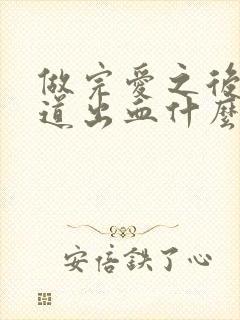 做完愛之後
道出血什麼
安倍鉄了心